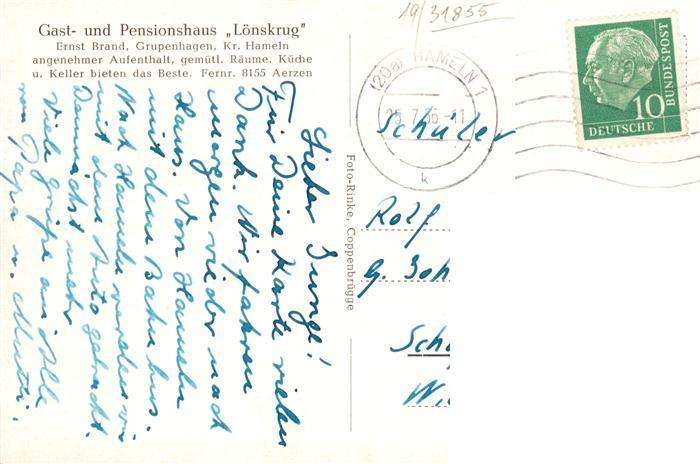 19/31855
Gast- und Pensionshaus „Lönskrug"
Ernst Brand, Grupenhagen, Kr. Hameln
angenehmer Aufenthalt, gemütl. Räume. Küche
u. Keller bieten das Beste. Fernr. 8155 Aerzen
Lieber Junge!
Für Deine Karte vielen
Dank. Wir fahren
morgen wieder nach
Haus. Von Hameln
mit dem Bahn bus.
Nach Hameln werden wir
mit dem Auto gebracht.
Demnächst mehr
Viele Grüße an Alle
von Papa u. Mutti.
Foto-Rinke, Coppenbrügge
(20a) HAMELN 1
25.7.56
k
10
DEUTSCHE
BUNDESPOST
Schüler
Rolf
G. Joh
Sch
Wi